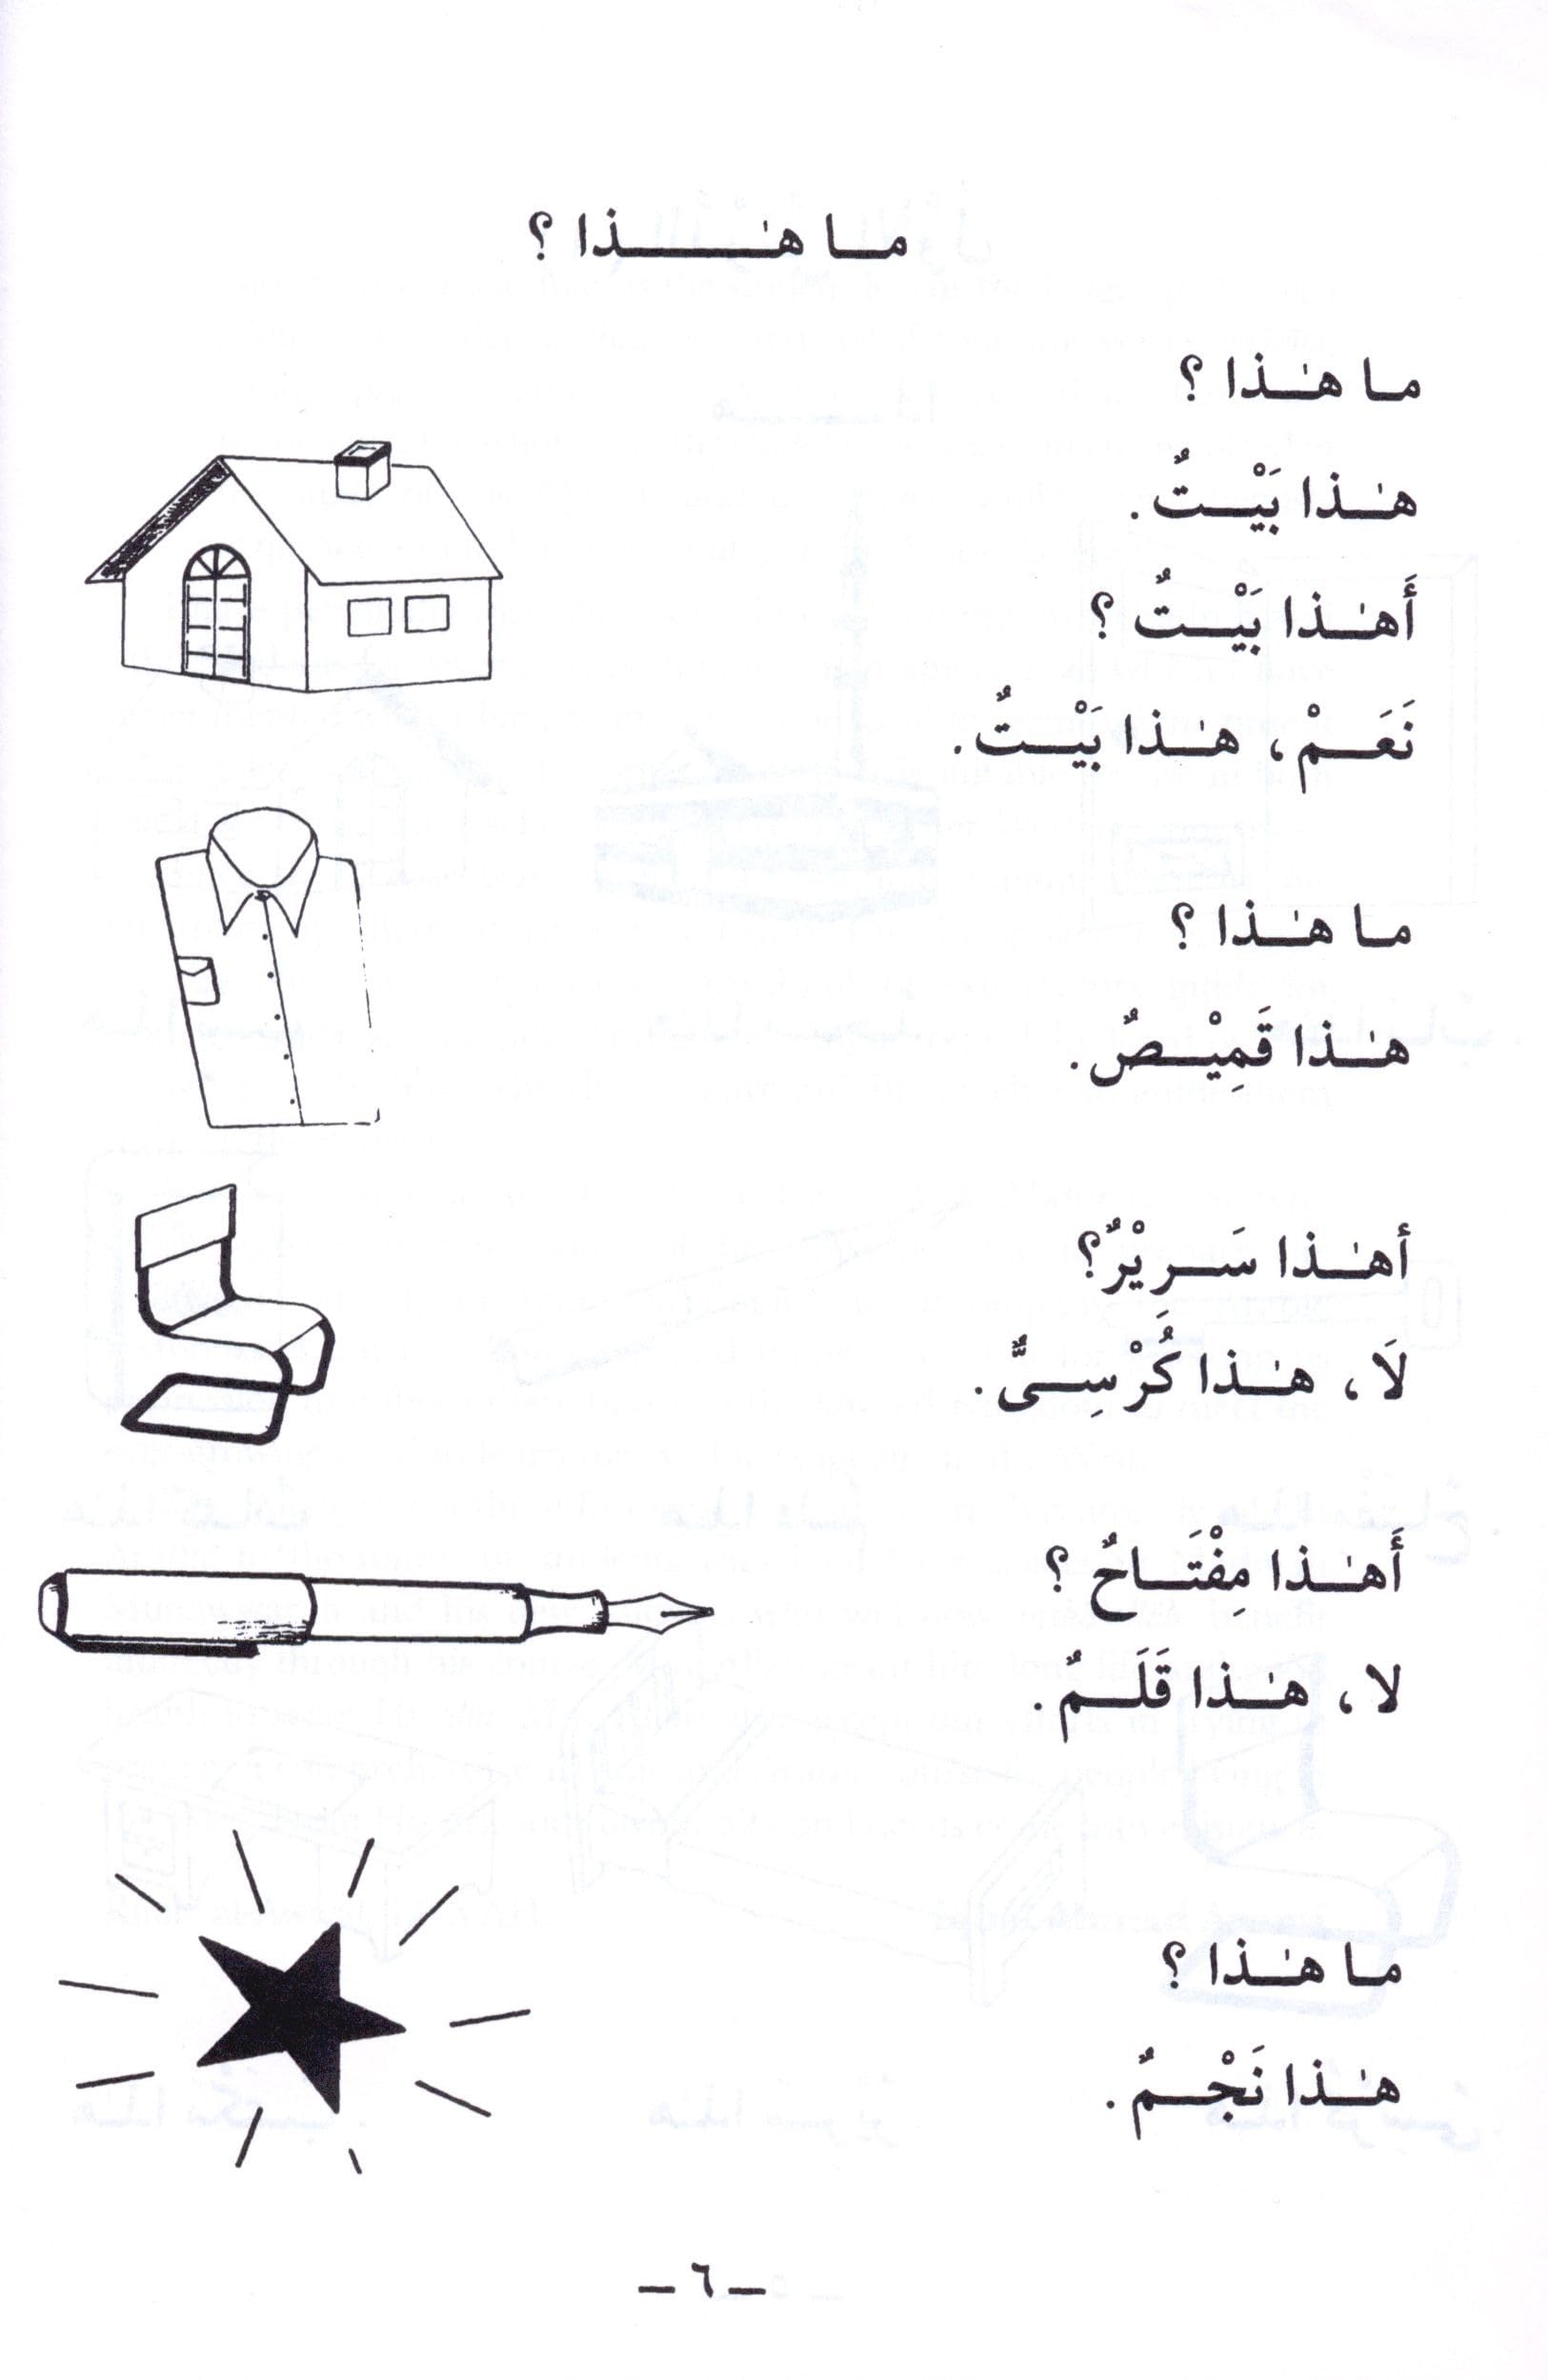 ما هٰذا ؟
ما هٰذا ؟
هٰذا بَيْتٌ.
أَهٰذا بَيْتٌ ؟
نَعَمْ، هٰذا بَيْتٌ.
ما هٰذا ؟
هٰذا قَمِيْصٌ.
أهٰذا سَرِيْرٌ؟
لَا، هٰذا كُرْسِىٌّ.
أَهٰذا مِفْتَاحٌ ؟
لا، هٰذا قَلَمٌ.
ما هٰذا ؟
هٰذا نَجْمٌ.
– ٦ –